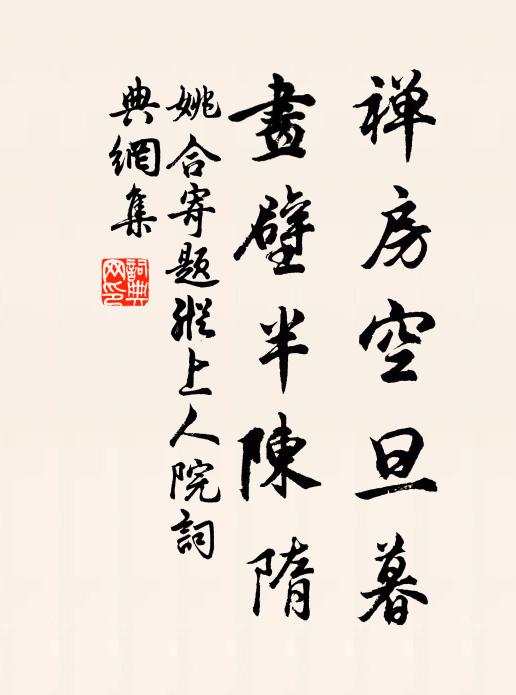 禅房空旦暮
畫壁半陳隋
姚合寄題縱上人院詞
典網集
詞典網印